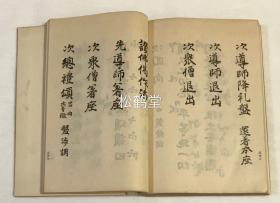 次導師降礼盤 還着本座
次導師退出
次衆僧退出
讃佛偈作法
先導師着座
次衆僧着座
次總禮頌 盤渉調
松鹤堂